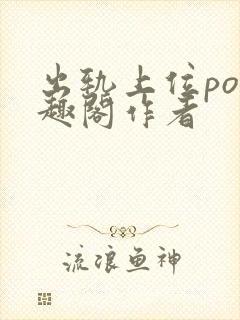 出轨上位po
趣阁作者
流浪鱼神